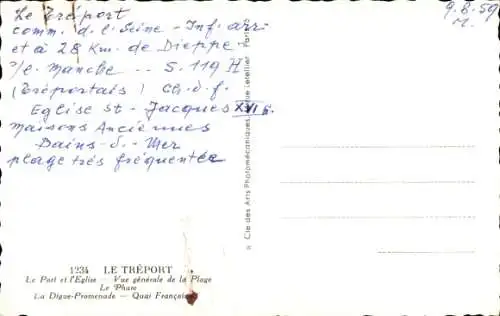 Le Tréport
comm. d. l. Seine - Inf. arr.
et à 28 Km. de Dieppe
s/l. Manche -- 5.119 H
(Tréportais) Ch. d. f.
Eglise St - Jacques XVI s.
Maisons Anciennes
Bains - d. - Mer
plage très fréquentée
9.8.59
M.
Cie des Arts Photomécaniques, rue Letellier
1234 LE TRÉPORT
Le Port et l'Eglise — Vue générale de la Plage
Le Phare
La Digue-Promenade — Quai François